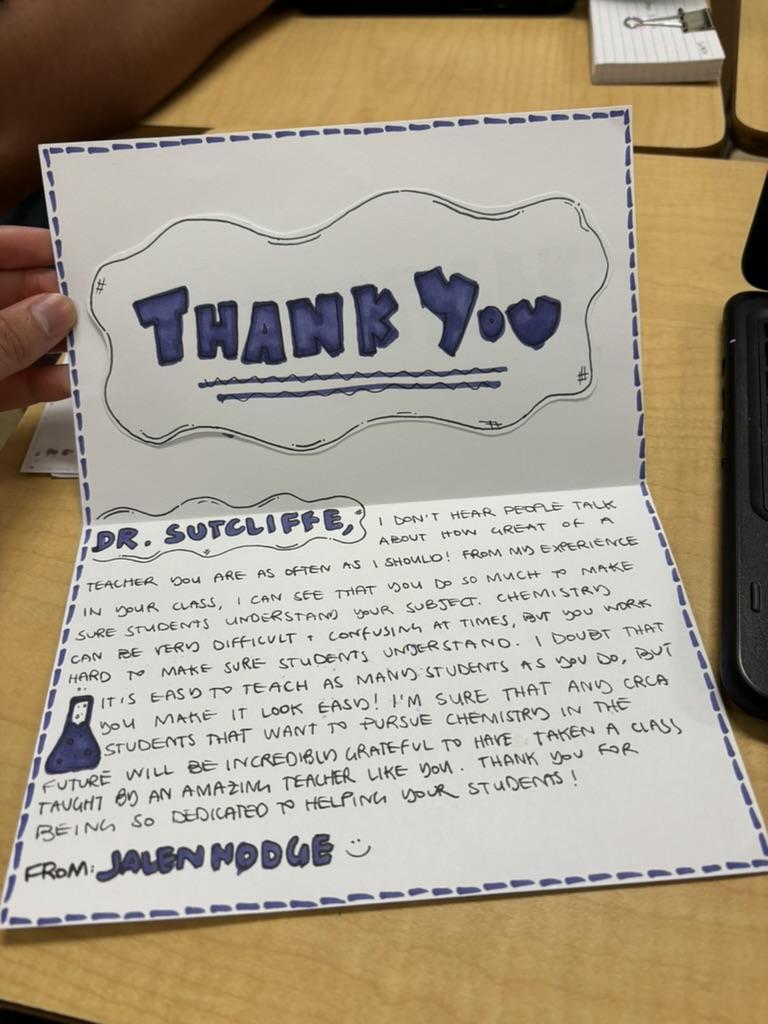 THANK YOU
DR. SUTCLIFFE, I DON'T HEAR PEOPLE TALK
ABOUT HOW GREAT OF A
TEACHER YOU ARE AS OFTEN AS I SHOULD! FROM MY EXPERIENCE
IN YOUR CLASS, I CAN SEE THAT YOU DO SO MUCH TO MAKE
SURE STUDENTS UNDERSTAND YOUR SUBJECT. CHEMISTRY
CAN BE VERY DIFFICULT + CONFUSING AT TIMES, BUT YOU WORK
HARD TO MAKE SURE STUDENTS UNDERSTAND. I DOUBT THAT
IT IS EASY TO TEACH AS MANY STUDENTS AS YOU DO, BUT
YOU MAKE IT LOOK EASY! I'M SURE THAT ANY CRCA
STUDENTS THAT WANT TO PURSUE CHEMISTRY IN THE
FUTURE WILL BE INCREDIBLY GRATEFUL TO HAVE TAKEN A CLASS
TAUGHT BY AN AMAZING TEACHER LIKE YOU. THANK YOU FOR
BEING SO DEDICATED TO HELPING YOUR STUDENTS!
FROM: JALEN HODGE